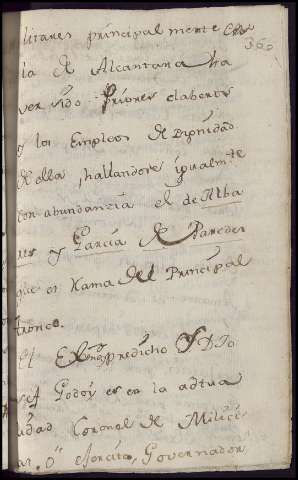 litares principalmente en
36
la de Alcantara ha
ver sido Priores claberos
y los Empleos de Dignidad
de ella, hallandose igualmte
con abundanzia el de Alba
y Garcia de Paredes
que es Rama del Principal
tronco.
El predicho Sr Dn Jo
sef Godoy es en la actua
lidad Coronel de Milici
as, ó exercito, Governador